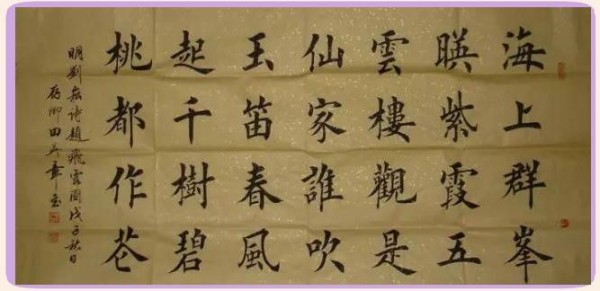 海上群峯
暎紫霞五
雲樓觀是
仙家誰吹
玉笛春風
起千樹碧
桃都作花
明劉崧诗趙飛雲圖戊子秋日
田